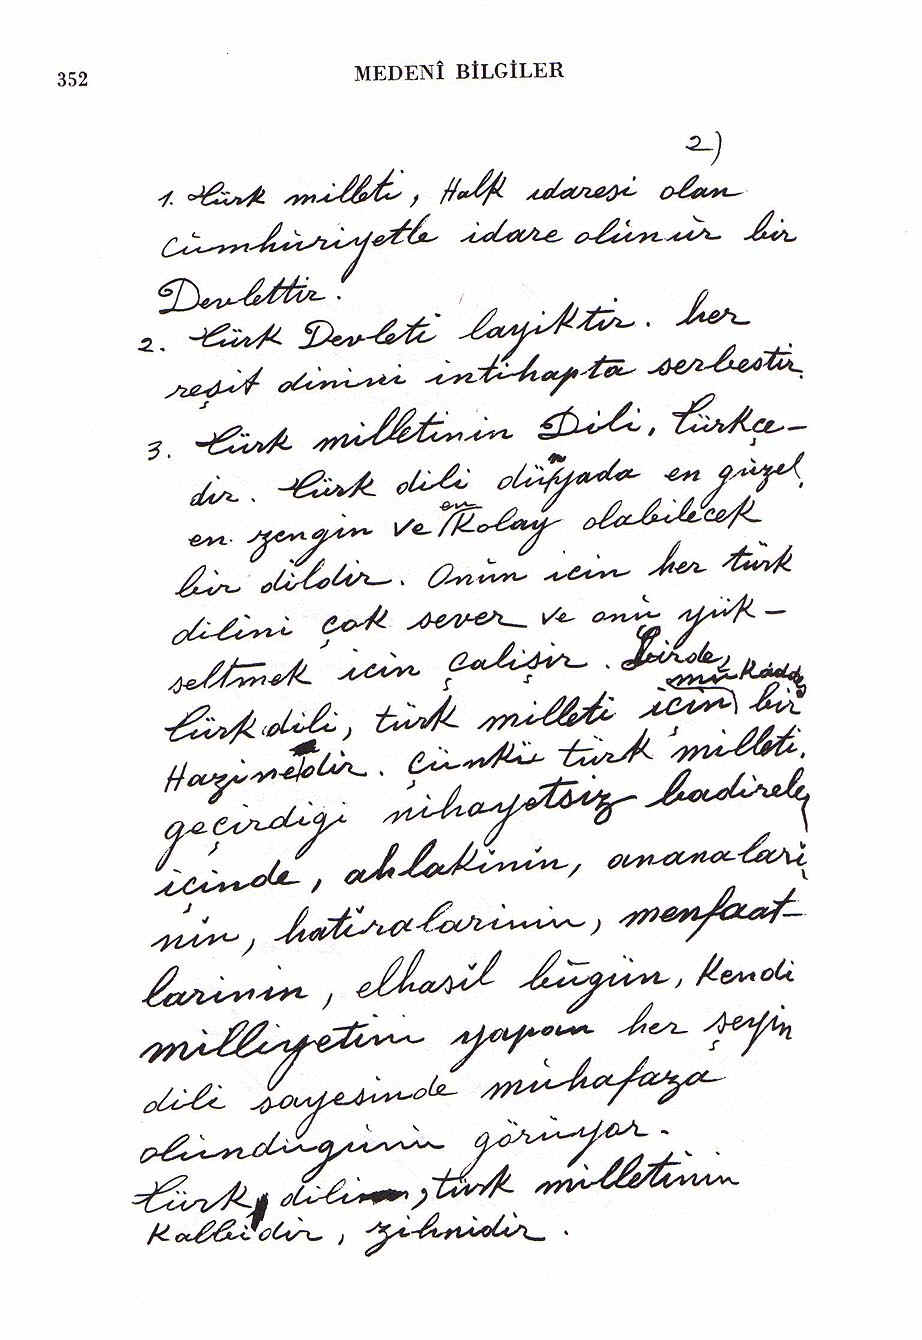 352
MEDENÎ BİLGİLER
2)
1. Türk milleti, Halk idaresi olan
Cümhuriyetle idare olunur bir
Devlettir.
2. Türk Devleti layiktir. her
reşit dinini intihapta serbestir.
3. Türk milletinin Dili, Türkçe-
dir. Türk dili dünyada en güzel,
en zengin ve en Kolay olabilecek
bir dildir. Onun icin her türk
dilini çok sever ve onu yük-
seltmek icin Çalişir. Birde,
Türk dili, türk milleti için mukaddes bir
Hazinedir. Çünkü türk milleti,
geçirdigi nihayetsiz badireler
içinde, ahlakinin, ananalari
nin, hatiralarinin, menfaat-
larinin, elhasil bugün, Kendi
milliyetini yapan her şeyin
dili sayesinde muhafaza
olundugunu görüyor.
Türk dili, türk milletinin
Kalbidir, zihnidir.